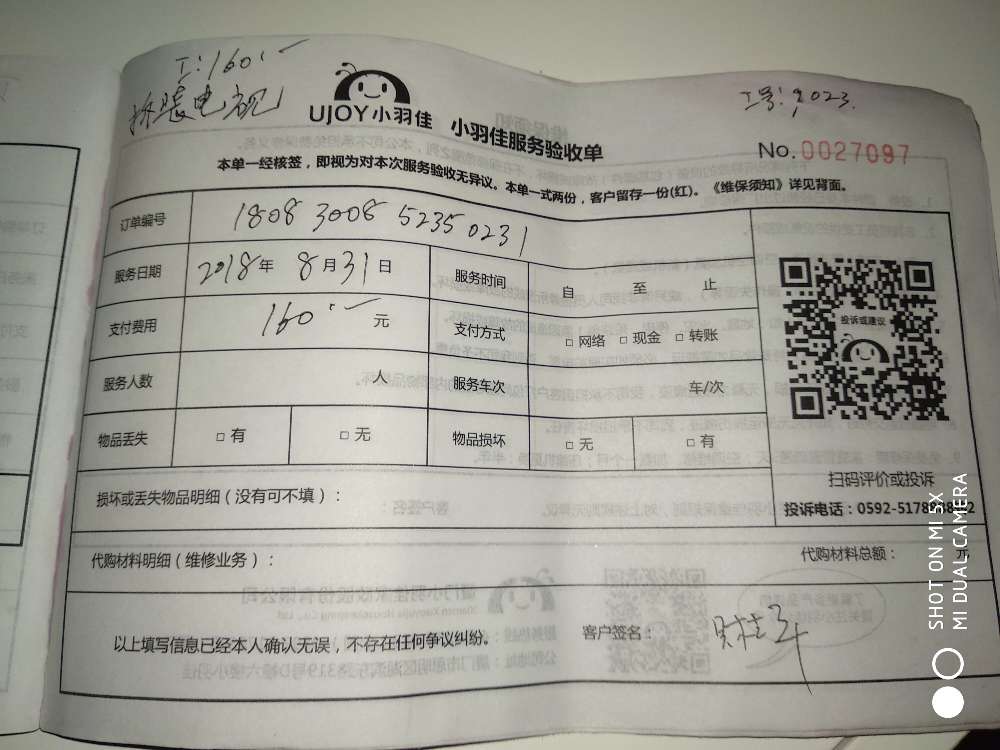 工:160.-
拆装电视
工号:9023.
UJOY小羽佳 小羽佳服务验收单
No.0027097
本单一经核签，即视为对本次服务验收无异议。本单一式两份，客户留存一份(红)。《维保须知》详见背面。
订单编号 1808 3008 5235 0231
服务日期 2018年 8月31日 服务时间 自 至 止
支付费用 160.- 元 支付方式 □ 网络 □ 现金 □ 转账
投诉或建议
服务人数 人 服务车次 车/次
物品丢失 □ 有 □ 无 物品损坏 □ 无 □ 有
扫码评价或投诉
损坏或丢失物品明细（没有可不填）：
投诉电话：0592-5178
代购材料明细（维修业务）： 代购材料总额： 元
以上填写信息已经本人确认无误，不存在任何争议纠纷。 客户签名：
SHOT ON MI 5X
MI DUAL CAMERA